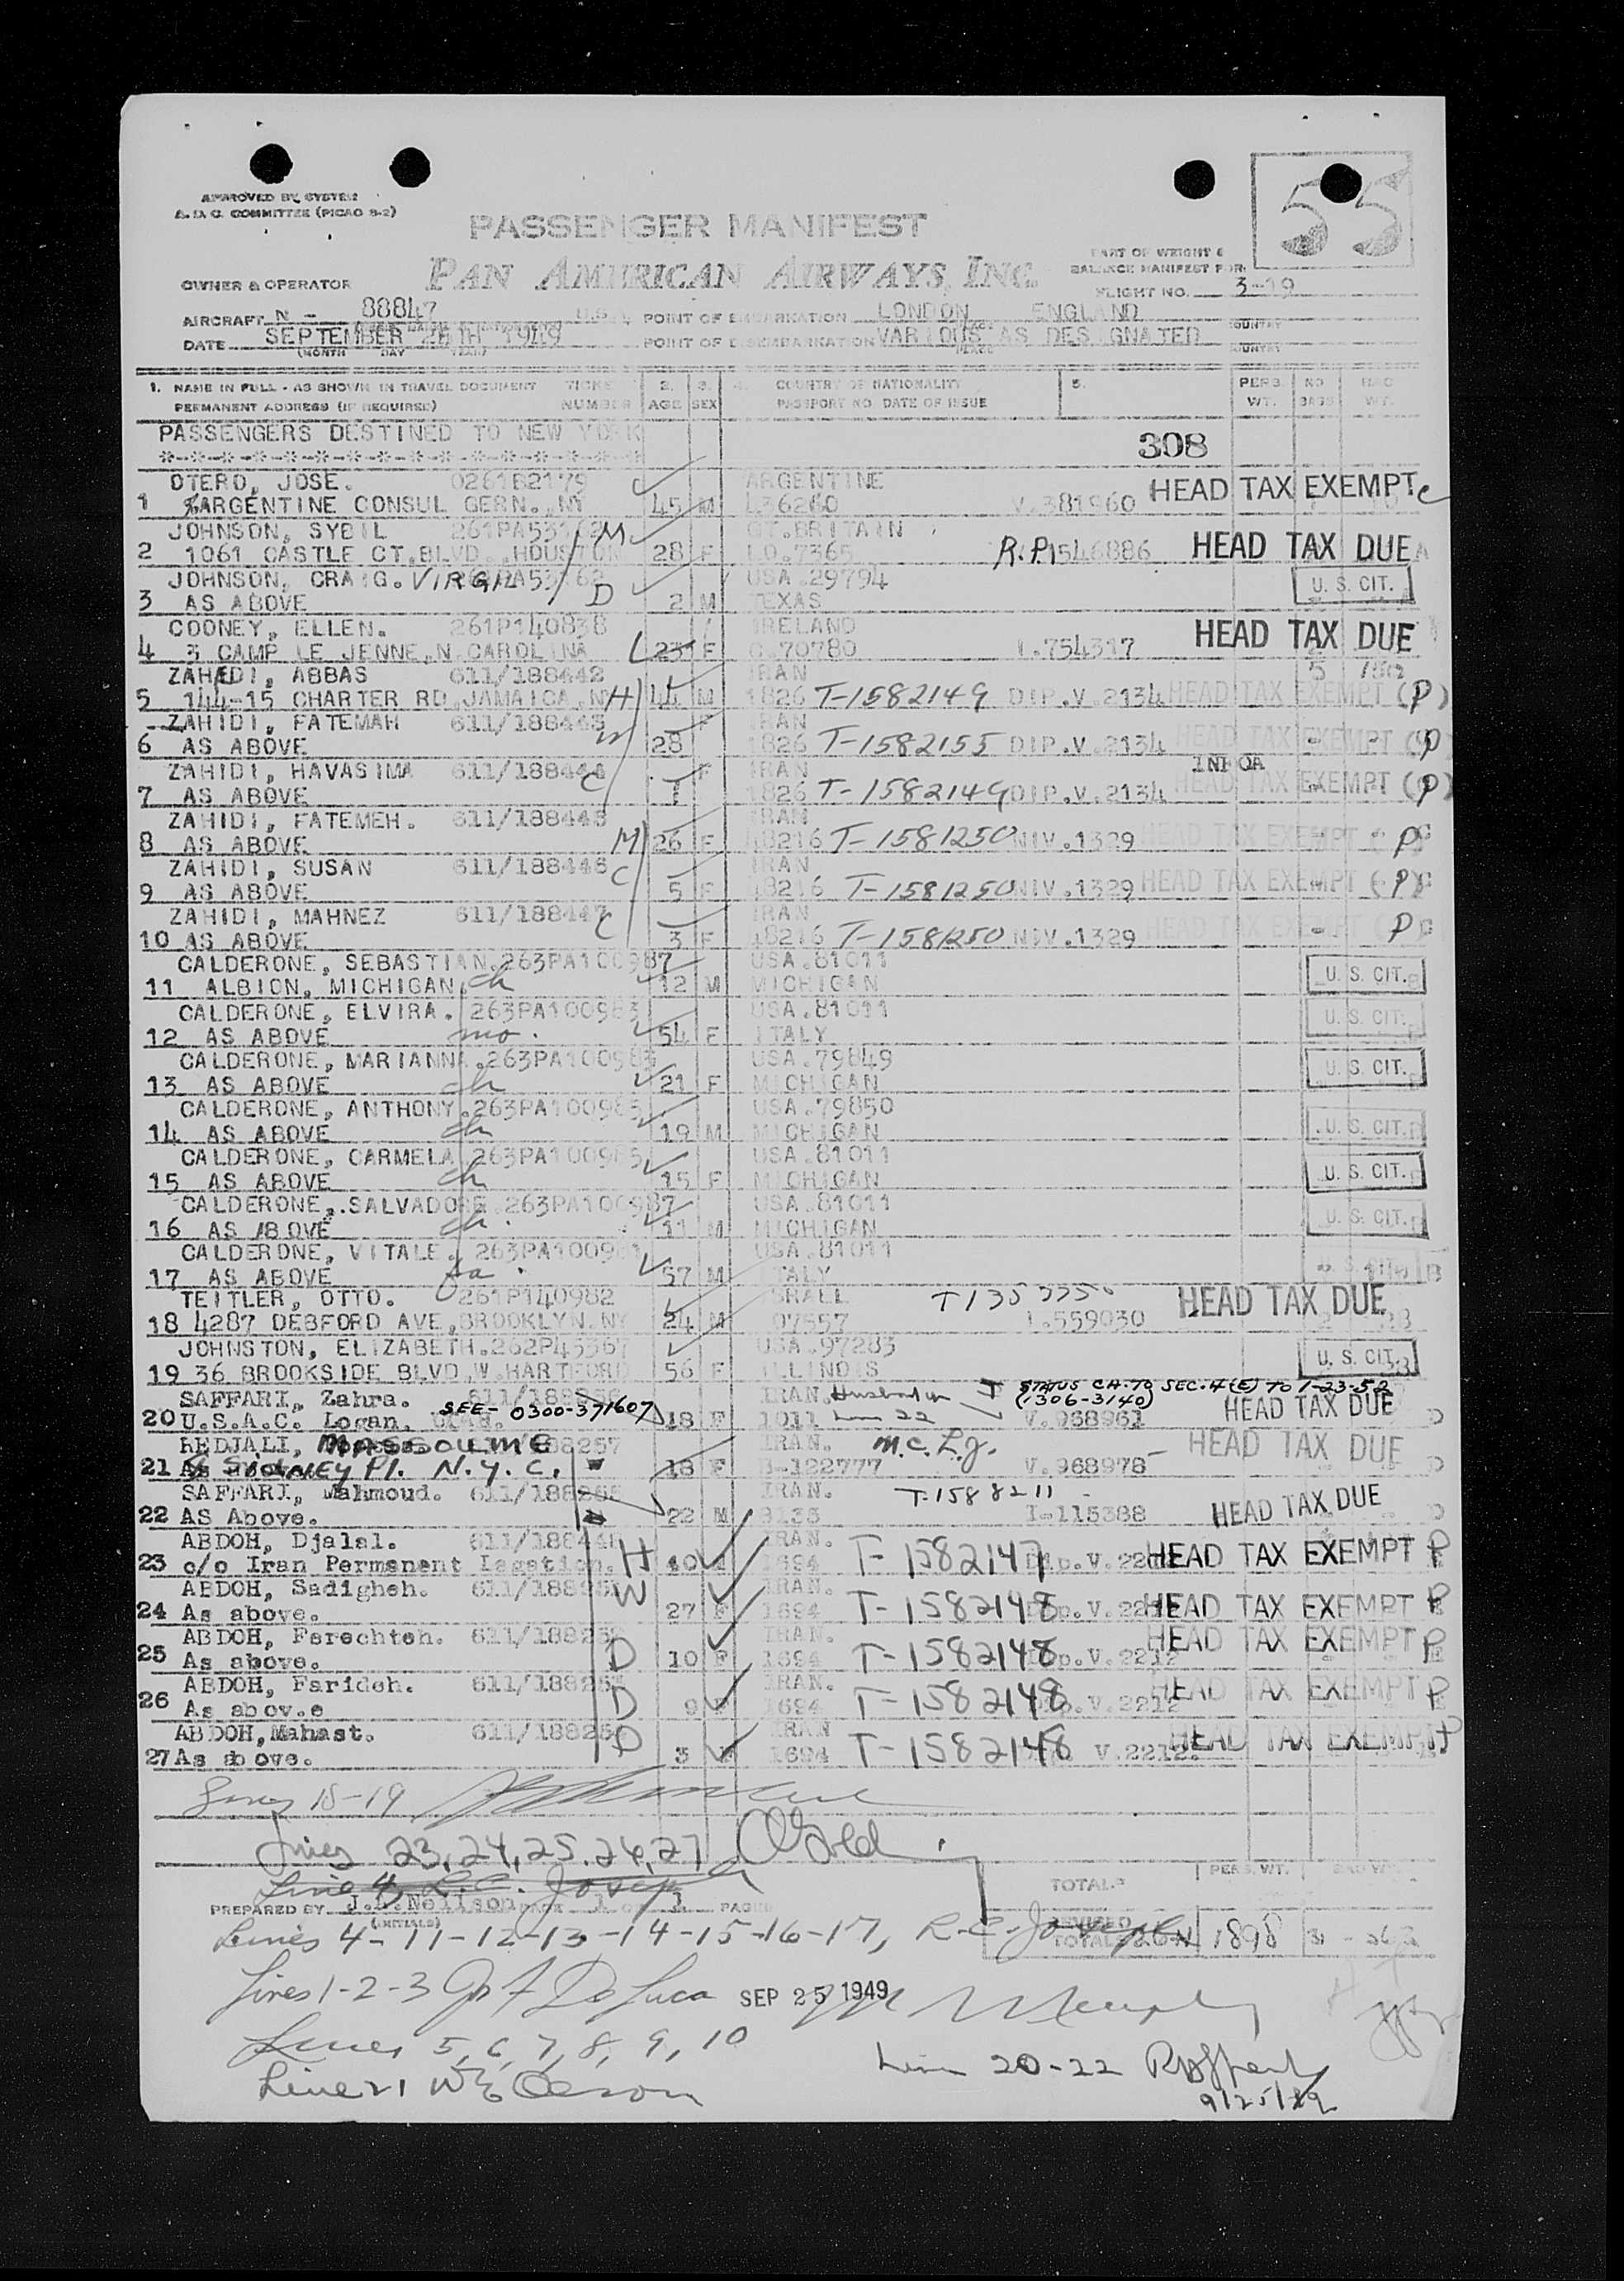 APPROVED BY SYSTEM
A. D. C. COMMITTEE (PICAO 9-2)
55
PASSENGER MANIFEST
PART OF WEIGHT &
BALANCE MANIFEST FOR
OWNER & OPERATOR PAN AMERICAN AIRWAYS, INC.
FLIGHT NO. 3-19
AIRCRAFT N - 88847 U.S. POINT OF EMBARKATION LONDON ENGLAND
DATE SEPTEMBER 1949 POINT OF DISEMBARKATION VARIOUS AS DESIGNATED COUNTRY
(MONTH DAY YEAR) PLACE COUNTRY
1. NAME IN FULL - AS SHOWN IN TRAVEL DOCUMENT TICKET 2. 3. 4. COUNTRY OF NATIONALITY 5. PERS. NO BAG
PERMANENT ADDRESS (IF REQUIRED) NUMBER AGE SEX PASSPORT NO. DATE OF ISSUE WT. BAGS WT.
PASSENGERS DESTINED TO NEW YORK
308
OTERO, JOSE. 0261B2179 ARGENTINE
1 %ARGENTINE CONSUL GERN. NY 45 M 436260 V.381960 HEAD TAX EXEMPT
JOHNSON, SYBIL M GT.BRITAIN
2 1061 CASTLE CT.BLVD.,HOUSTON 28 F LO.7365 R.P.1546886 HEAD TAX DUE
JOHNSON, CRAIG. VIRGIL USA.29794
3 AS ABOVE D 2 M TEXAS U. S. CIT.
COONEY, ELLEN. 261P140838 IRELAND
4 3 CAMP LE JENNE,N CAROLINA 23 F C.70780 I.754317 HEAD TAX DUE
ZAHEDI, ABBAS 611/188442 IRAN
5 144-15 CHARTER RD,JAMAICA,NY H 44 M 1826 T-1582149 DIP.V.2134 HEAD TAX EXEMPT (P)
ZAHIDI, FATEMAH 611/188443 F IRAN
6 AS ABOVE W 28 1826 T-1582155 DIP.V.2134 HEAD TAX EXEMPT (P
ZAHIDI, HAVASIMA 611/188444 F IRAN
7 AS ABOVE C 1 1826 T-1582149 DIP.V.2134 HEAD TAX EXEMPT (P)
ZAHIDI, FATEMEH. 611/188445 IRAN
8 AS ABOVE M 26 F 18216 T-1581250 NIV.1329 HEAD TAX EXEMPT P
ZAHIDI, SUSAN 611/188446 IRAN
9 AS ABOVE C 5 F 18216 T-1581250 NIV.1329 HEAD TAX EXEMPT (P)
ZAHIDI, MAHNEZ 611/188447 IRAN
10 AS ABOVE C 3 F 18216 T-1581250 NIV.1329 HEAD TAX EXEMPT P
CALDERONE, SEBASTIAN.263PA100987 USA.81011
11 ALBION, MICHIGAN ch 12 M MICHIGAN U. S. CIT.
CALDERONE, ELVIRA. 263PA100983 USA.81011
12 AS ABOVE mo. 54 F ITALY U. S. CIT.
CALDERONE, MARIANNA.263PA100983 USA.79849
13 AS ABOVE ch 21 F MICHIGAN U. S. CIT.
CALDERONE, ANTHONY.263PA100985 USA.79850
14 AS ABOVE ch 19 M MICHIGAN U. S. CIT.
CALDERONE, CARMELA 263PA100985 USA.81011
15 AS ABOVE ch 15 F MICHIGAN U. S. CIT.
CALDERONE, SALVADORE 263PA100987 USA.81011
16 AS ABOVE ch. 11 M MICHIGAN U. S. CIT.
CALDERONE, VITALE. USA.81011
17 AS ABOVE fa. 57 M ITALY
TEITLER, OTTO. 261P140982
18 4287 DEBFORD AVE,BROOKLYN.NY 24 M 07557 I.559030 HEAD TAX DUE
JOHNSTON, ELIZABETH.262P45567 USA.97283
19 36 BROOKSIDE BLVD,W.HARTFORD 56 F ILLINOIS U. S. CIT.
SAFFARI, Zahra. IRAN. Husband on STATUS CH. TO SEC. 4(E) TO 1-23-52
20 U.S.A.C. Logan, UTAH. SEE- 0300-371607 18 F 1011 Line 22 (1306-3140) V.968961 HEAD TAX DUE
REDJALI, MASSOUME IRAN. HEAD TAX DUE
21 SIDNEY Pl. N.Y.C. 18 F V.968978
SAFFARI, Mahmoud. IRAN. T-1588211
22 AS Above. 22 M I-115388 HEAD TAX DUE
ABDOH, Djalal. IRAN.
23 c/o Iran Permanent Legation. H 40 1694 T-1582147 HEAD TAX EXEMPT P
ABDOH, Sadigheh. W IRAN.
24 As above. 27 F 1694 T-1582148 HEAD TAX EXEMPT P
ABDOH, Ferechteh. IRAN.
25 As above. D 10 F 1694 T-1582148 Dip.V.2212 HEAD TAX EXEMPT P
ABDOH, Farideh. IRAN.
26 As above D 9 F 1694 T-1582148 Dip.V.2212 HEAD TAX EXEMPT P
ABDOH,Mahast. IRAN
27 As above. D 3 F 1694 T-1582148 V.2212. HEAD TAX EXEMPT
Lines 18-19
Lines 23,24,25,26,27
Line 4, R.C. Joseph
TOTALS PERS. WT. BAG WT.
PREPARED BY J.D.Neilson PAGE 1 OF 1 PAGES
(INITIALS)
Lines 4-11-12-13-14-15-16-17, R.C. Joseph
REVISED TOTALS 1898
Lines 1-2-3 De Luca SEP 25 1949
Lines 5, 6, 7, 8, 9, 10
Line 20-22
Line 21
9/25/49